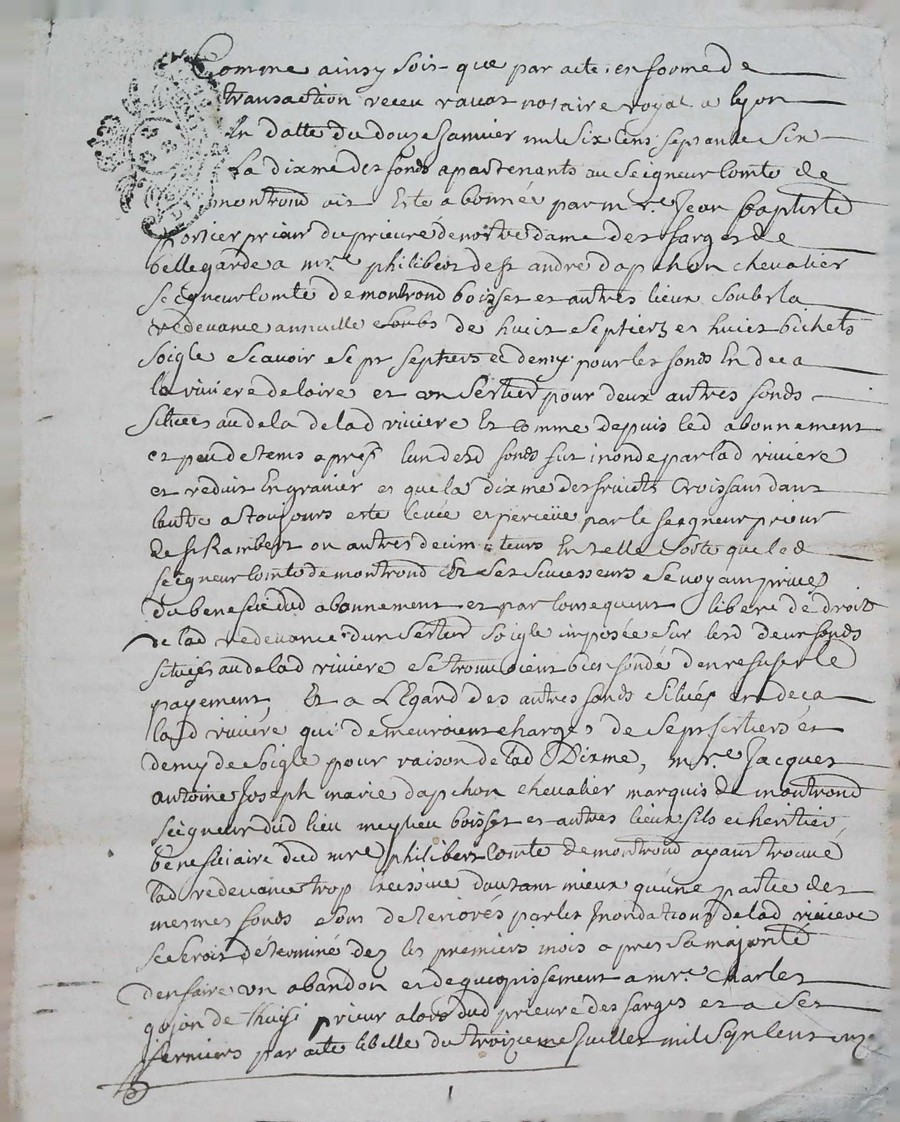 Comme ainsy soit que par acte en forme de
transaction receu ravat notaire royal a lyon
En datte du douze Janvier mil six cens septante six
La dixme des fonds apartenants au seigneur Comte de
montrond ait Esté abonnée par mre Jean baptiste
portier prieur du prieuré de nostre dame des farges de
bellegarde a mre philibert de st andré dapchon chevalier
seigneur Comte de montrond boisset et autres lieux soubs la
redevance annuelle soubs de huict septiers et huict bichets
soigle scavoir sept septiers et demy pour les fonds En deca
la riviere de loire et un sertier pour deux autres fonds
situés au dela de lad riviere Et Comme depuis led abonnement
et peu de tems apres lun desd fonds fut inondé par lad riviere
et reduit En gravier et que la dixme des fruicts Croissans dans
lautre a toujours esté levée et perceüe par le seigneur prieur
de st Rambert ou autres decimateurs En telle sorte que led
seigneur Comte de montrond et ses successeurs se voyant privés
du benefice dud abonnement et par Consequent liberé de droit
de lad redevance dun sertier soigle imposée sur lesd deux fonds
situés au dela d riviere se trouvoient bien fondé den refuser le
payement, Et a LEgard des autres fonds situés en deca
lad riviere qui demeuroient chargés de sept sertiers et
demy de soigle pour raison de lad Dixme, mre Jacques
antoine Joseph marie dapchon chevalier marquis de montrond
seigneur dud lieu meylieu boisset et autres lieux fils et heritier
beneficiaire dud mre philibert Comte de montrond ayant trouvé
lad redevance trop Excessive dautant mieux quune partie des
mesmes fonds sont deteriorés par les Inondations de lad riviere
se seroit determiné dez les premiers mois apres sa majorité
den faire un abandon et deguerpissement a mre Charles
gojon de thuisi prieur alors dud prieuré des farges et a ses
fermiers par acte libellé du troizieme Juillet mil sept cent onze
1